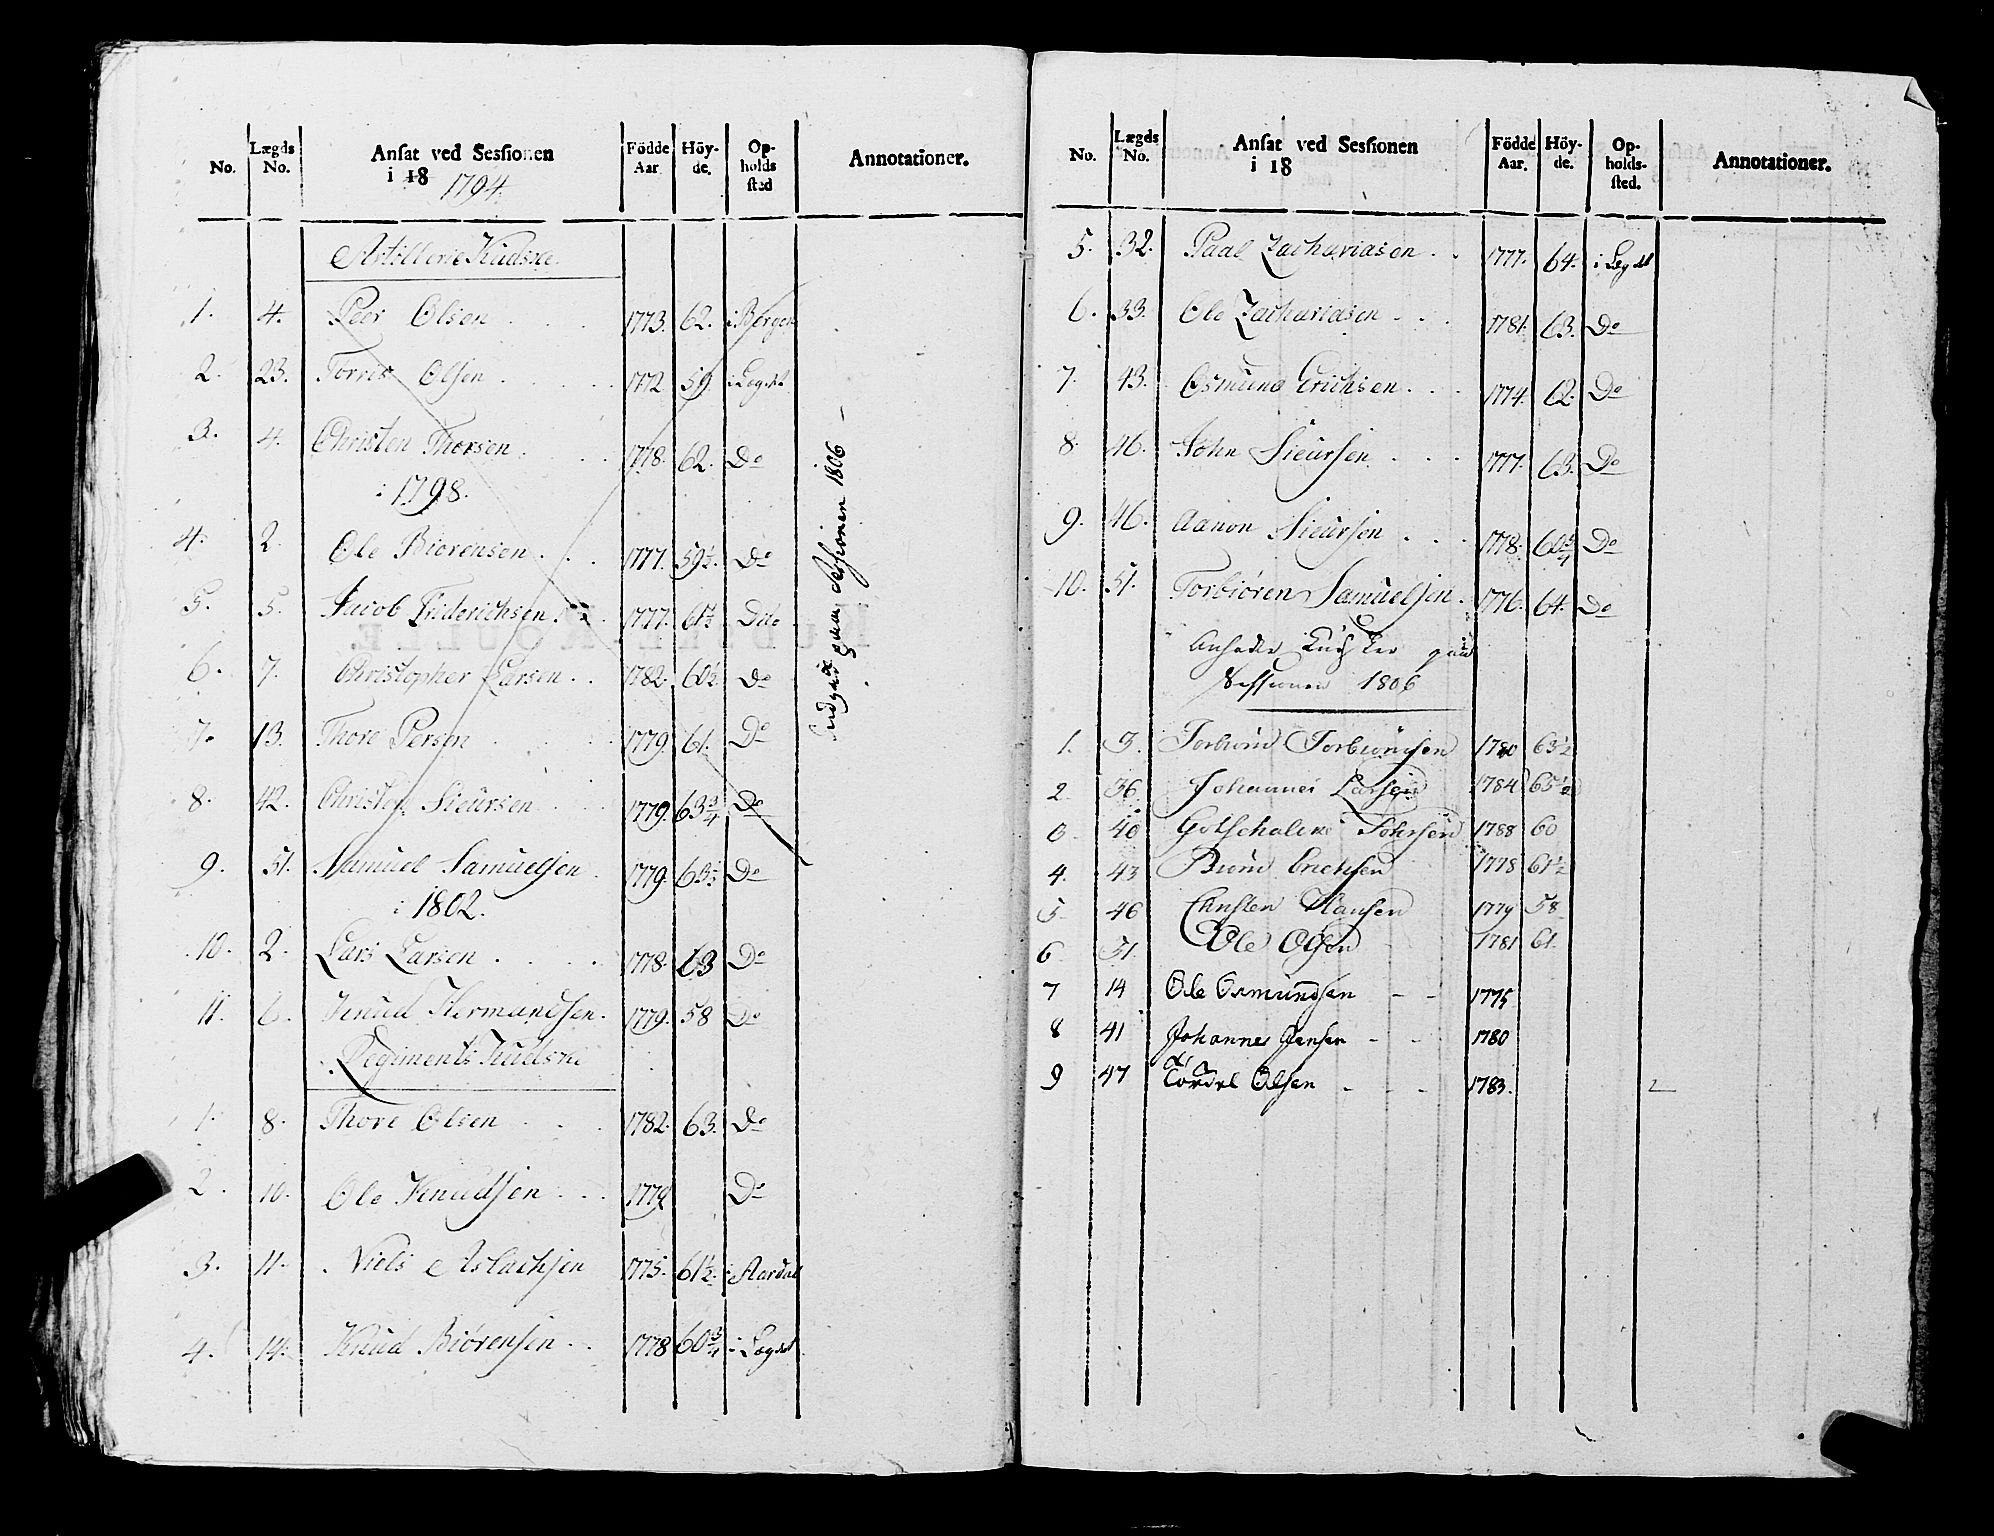 No. Lægds No. Ansat ved Sessionen i 18 1794 Födde Aar Höy-de. Op-holds sted Annotationer.
Artillerie Kudske
1. 4. Peer Olsen 1773. 62. i Bergen
2. 23. Torris Olsen 1772 59. i Legdet
3. 4. Christen Thorsen 1778. 62. Do
i 1798.
4. 2. Ole Biorensen 1777. 59½. Do
5. 5. Jacob Friderichsen 1777. 61½ Dito
6. 7. Christopher Larsen 1782. 60½ Do
7. 13. Thore Persen 1779. 61. Do
8. 42. Christen Sieursen 1779. 63¾ Do
9. 51. Samuel Samuelsen 1779. Do
i 1802.
10. 2. Lars Larsen 1778. 63 Do
11. 6. Knud Hermandsen. 1779. 58 Do
Regiments Kudske
1. 8. Thore Olsen 1782. 63. Do
2. 10. Ole Knudsen 1779 Do
3. 11. Niels Aslachsen 1775. 61½. Aardal
4. 14. Knud Biörensen 1778 60¾ i Lægdet
Sessionen 1806
No. Lægds No. Ansat ved Sessionen i 18 Födde Aar. Höy-de. Op-holds-sted. Annotationer.
5. 32. Paal Zachariasen 1777. 64. i Legdet
6. 33. Ole Zachariasen 1781. 63. Do
7. 43. Osmund Erichsen 1774. 62. Do
8. 46. John Sieursen 1777. 63. Do
9. 46. Aanon Sieursen 1778. 60¾ Do
10. 51. Torbiören Samuelsen 1776. 64. Do
Sessionen 1806
1. 3. Torbiörn Torbiörnsen 1780 63½
2. 36 Johannes Larsen 1784 65½
3 40 Gotschalk Johnsen 1788 60
4. 43 Biörn Erichsen 1778 61½
5 46 Christen Hansen 1779 58
6 51. Ole Olsen 1781 61.
7 14 Ole Osmundsen - - 1775
8 41 Johannes Jensen - - 1780
9 47 Olsen - - - 1783.